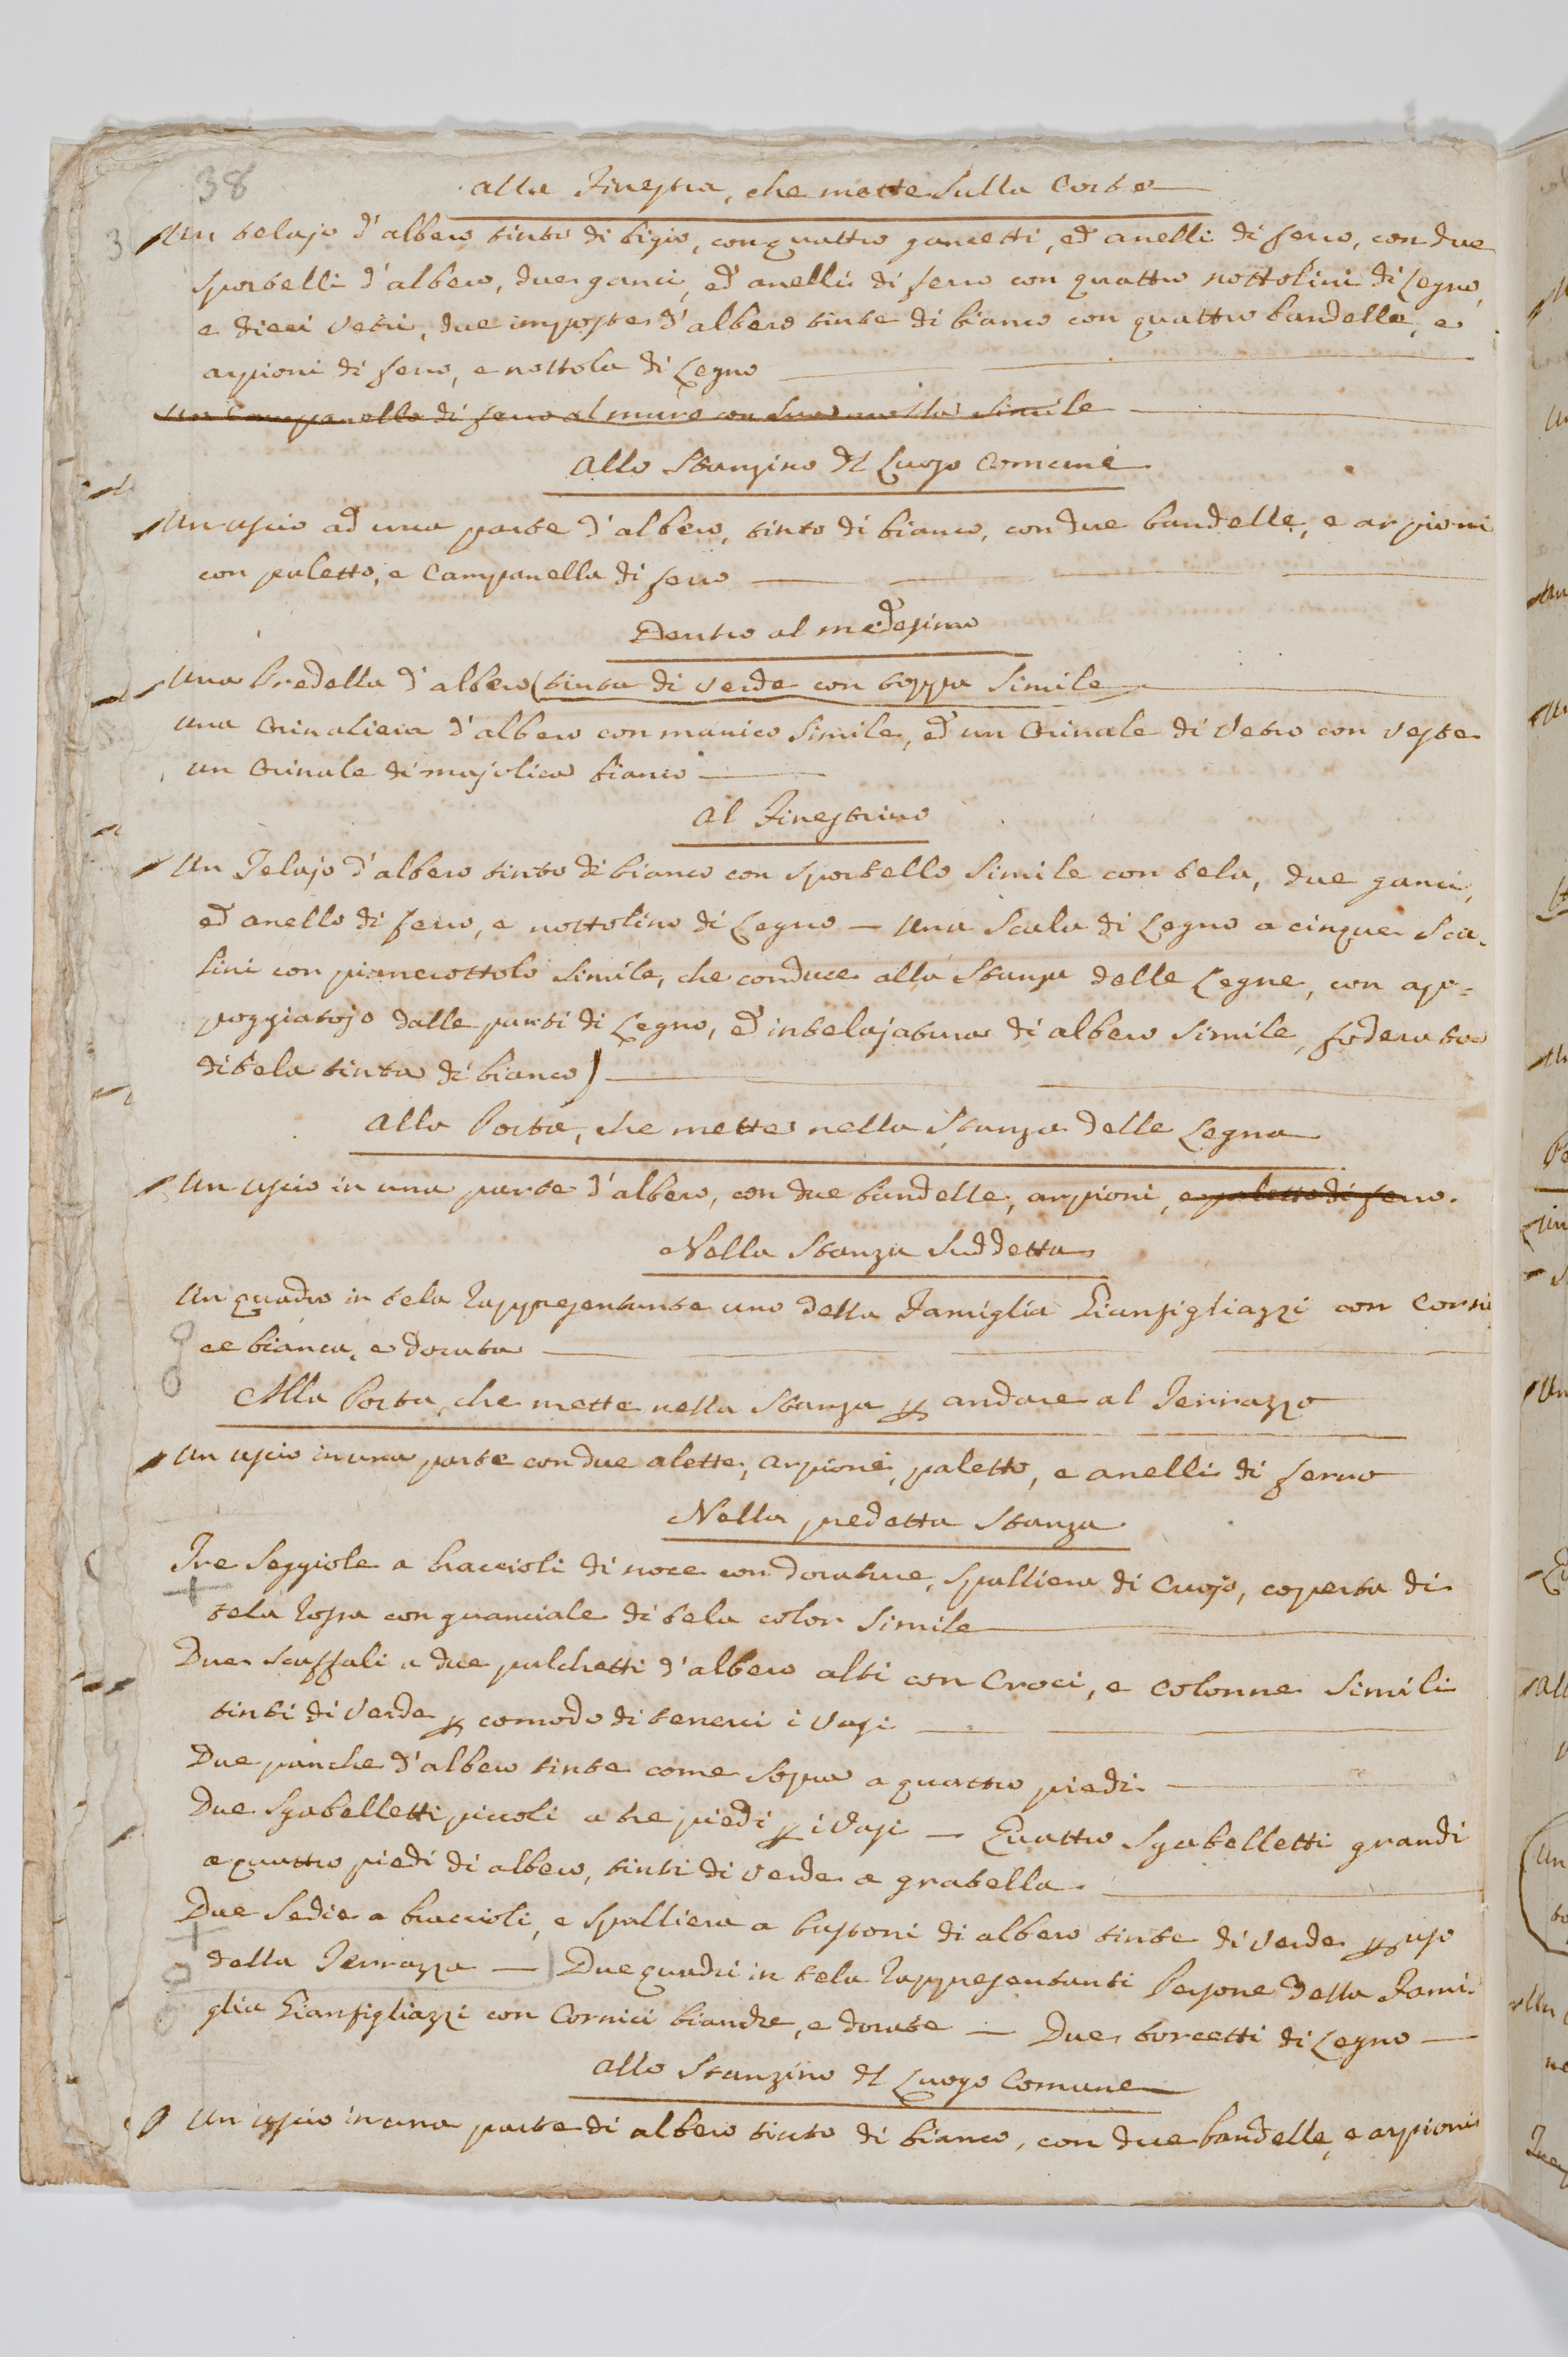 38
alla Finestra, che mette Sulla Corte
Un telajo d'albero tinto di bigio, con quattro gancetti, ed anelli di ferro, con due
sportelli d'albero, due ganci, ed anelli di ferro con quattro nottolini di Legno,
e dieci vetri, due imposte d'albero tinte di bianco con quattro bandelle, e
arpioni di ferro, e nottola di Legno
Un Campanello di ferro al muro con sua molla simile
Allo Stanzino del Luogo Comune
Un uscio ad una parte d'albero, tinto di bianco, con due bandelle, e arpioni
con paletto, e Campanella di ferro
Dentro al medesimo
Una Predella d'albero (tinta di verde con toppa Simile
una Orinaliera d'albero con manico Simile, ed un Orinale di Vetro con veste
un Orinale di majolica bianco
Al Finestrino
Un Telajo d'albero tinto di bianco con Sportello Simile con tela, due ganci,
ed anello di ferro, e nottolino di Legno — Una Scala di Legno a cinque Sca-
lini con pianerottolo Simile, che conduce alla Stanza delle Legne, con ap=
poggiatojo dalle parti di Legno, ed intelajatura di albero Simile, foderata
di tela tinta di bianco)
Alla Porta, che mette nella Stanza delle Legna
Un uscio in una parte d'albero, con due bandelle, arpioni, e paletto di ferro.
Nella Stanza Suddetta
Un quadro in tela rappresentante uno della Famiglia Gianfigliazzi con Corni
ce bianca, e dorata
Alla Porta, che mette nella Stanza p andare al Terrazzo
Un uscio in una parte con due alette, arpione, paletto, e anelli di ferro
Nella predetta Stanza
Tre Seggiole a braccioli di noce con dorature, Spalliera di Cuojo, coperta di
tela rossa con guanciale di tela color Simile
Due Scaffali a due palchetti d'albero alti con Croci, e Colonne Simili
tinti di Verde p comodo di tenerci i Vasi
Due panche d'albero tinte come Sopra a quattro piedi
Due Sgabelletti piccoli a tre piedi p i Vasi — Quattro Sgabelletti grandi
a quattro piedi di albero, tinti di verde a gratella
Due Sedie a braccioli, e Spalliera a bastoni di albero tinte di Verde p uso
della Terrazza — Due quadri in tela rappresentanti Persone della Fami-
glia Gianfigliazzi con Cornici bianche, e dorate — Due torcetti di Legno —
Allo Stanzino del Luogo Comune
Un uscio in una parte di albero tinto di bianco, con due bandelle, e arpioni